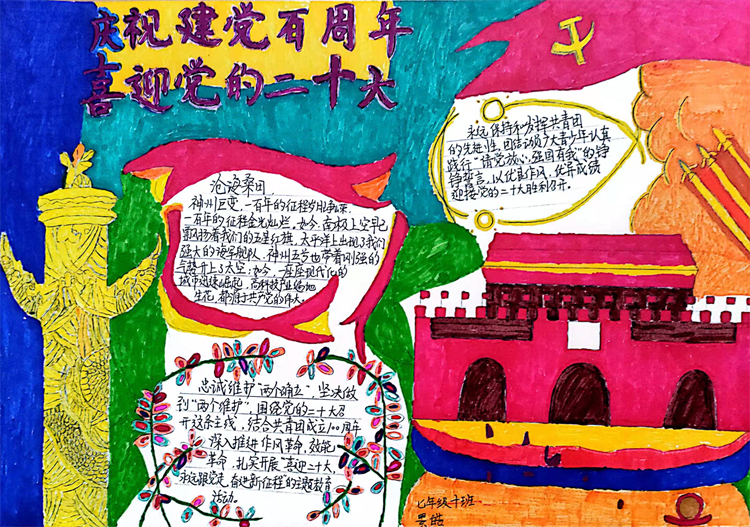 庆祝建党百周年
喜迎党的二十大
沧海桑田
神州巨变,一百年的征程岁月勃来,
一百年的征程金光灿烂,如今,南极上空早已
飘扬着我们的五星红旗,太平洋上出现了我们
强大的海军舰队,神州五号也带着刚强的
气势升上了太空;如今,一座座现代化的
城市迅速崛起,高科技产业遍地
生花,都归于共产党的伟大。
永远保持和发挥共青团
的先进性,团结领广大青少年认真
践行“请党放心,强国有我”的铮
铮誓言,以优良作风,优异成绩
迎接党的二十大胜利召开。
忠诚维护“两个确立”,坚决做
到“两个维护”,围绕党的二十大召
开这条主线,结合共青团成立100周年
深入推进作风革命,效能
革命,扎实开展“喜迎二十大,
永远跟党走,奋进新征程的主题教育
活动。
七年级十班